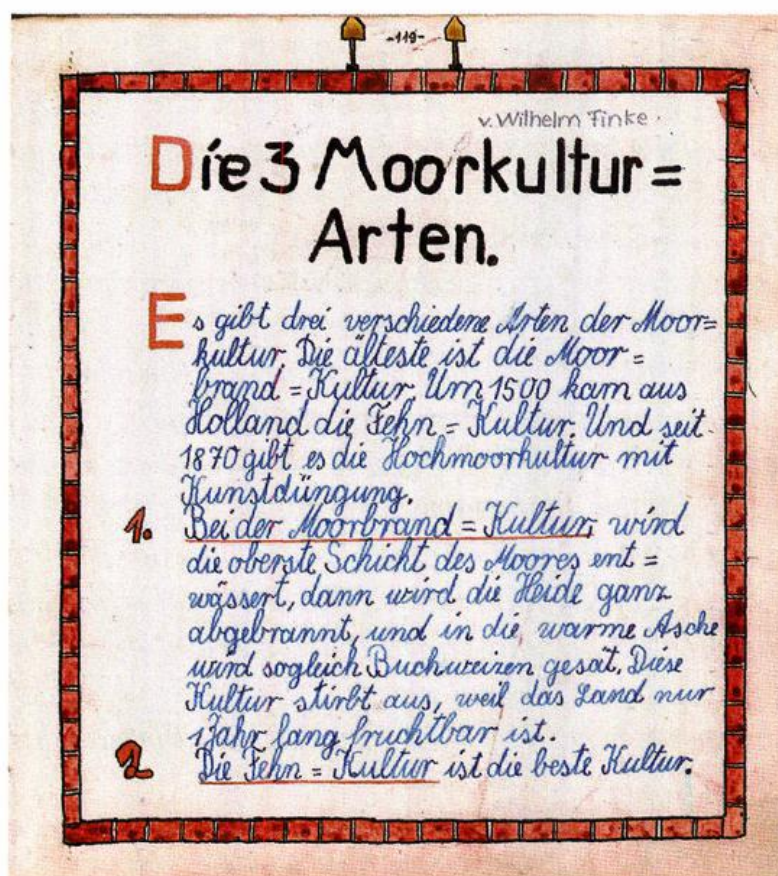 -119-
v. Wilhelm Finke.
Die 3 Moorkultur=
Arten.
Es gibt drei verschiedene Arten der Moor=
kultur. Die älteste ist die Moor=
brand=Kultur. Um 1500 kam aus
Holland die Fehn=Kultur. Und seit
1870 gibt es die Hochmoorkultur mit
Kunstdüngung.
1. Bei der Moorbrand=Kultur, wird
die oberste Schicht des Moores ent=
wässert, dann wird die Heide ganz
abgebrannt, und in die warme Asche
wird sogleich Buchweizen gesät. Diese
Kultur stirbt aus, weil das Land nur
1 Jahr lang fruchtbar ist.
2 Die Fehn=Kultur ist die beste Kultur.